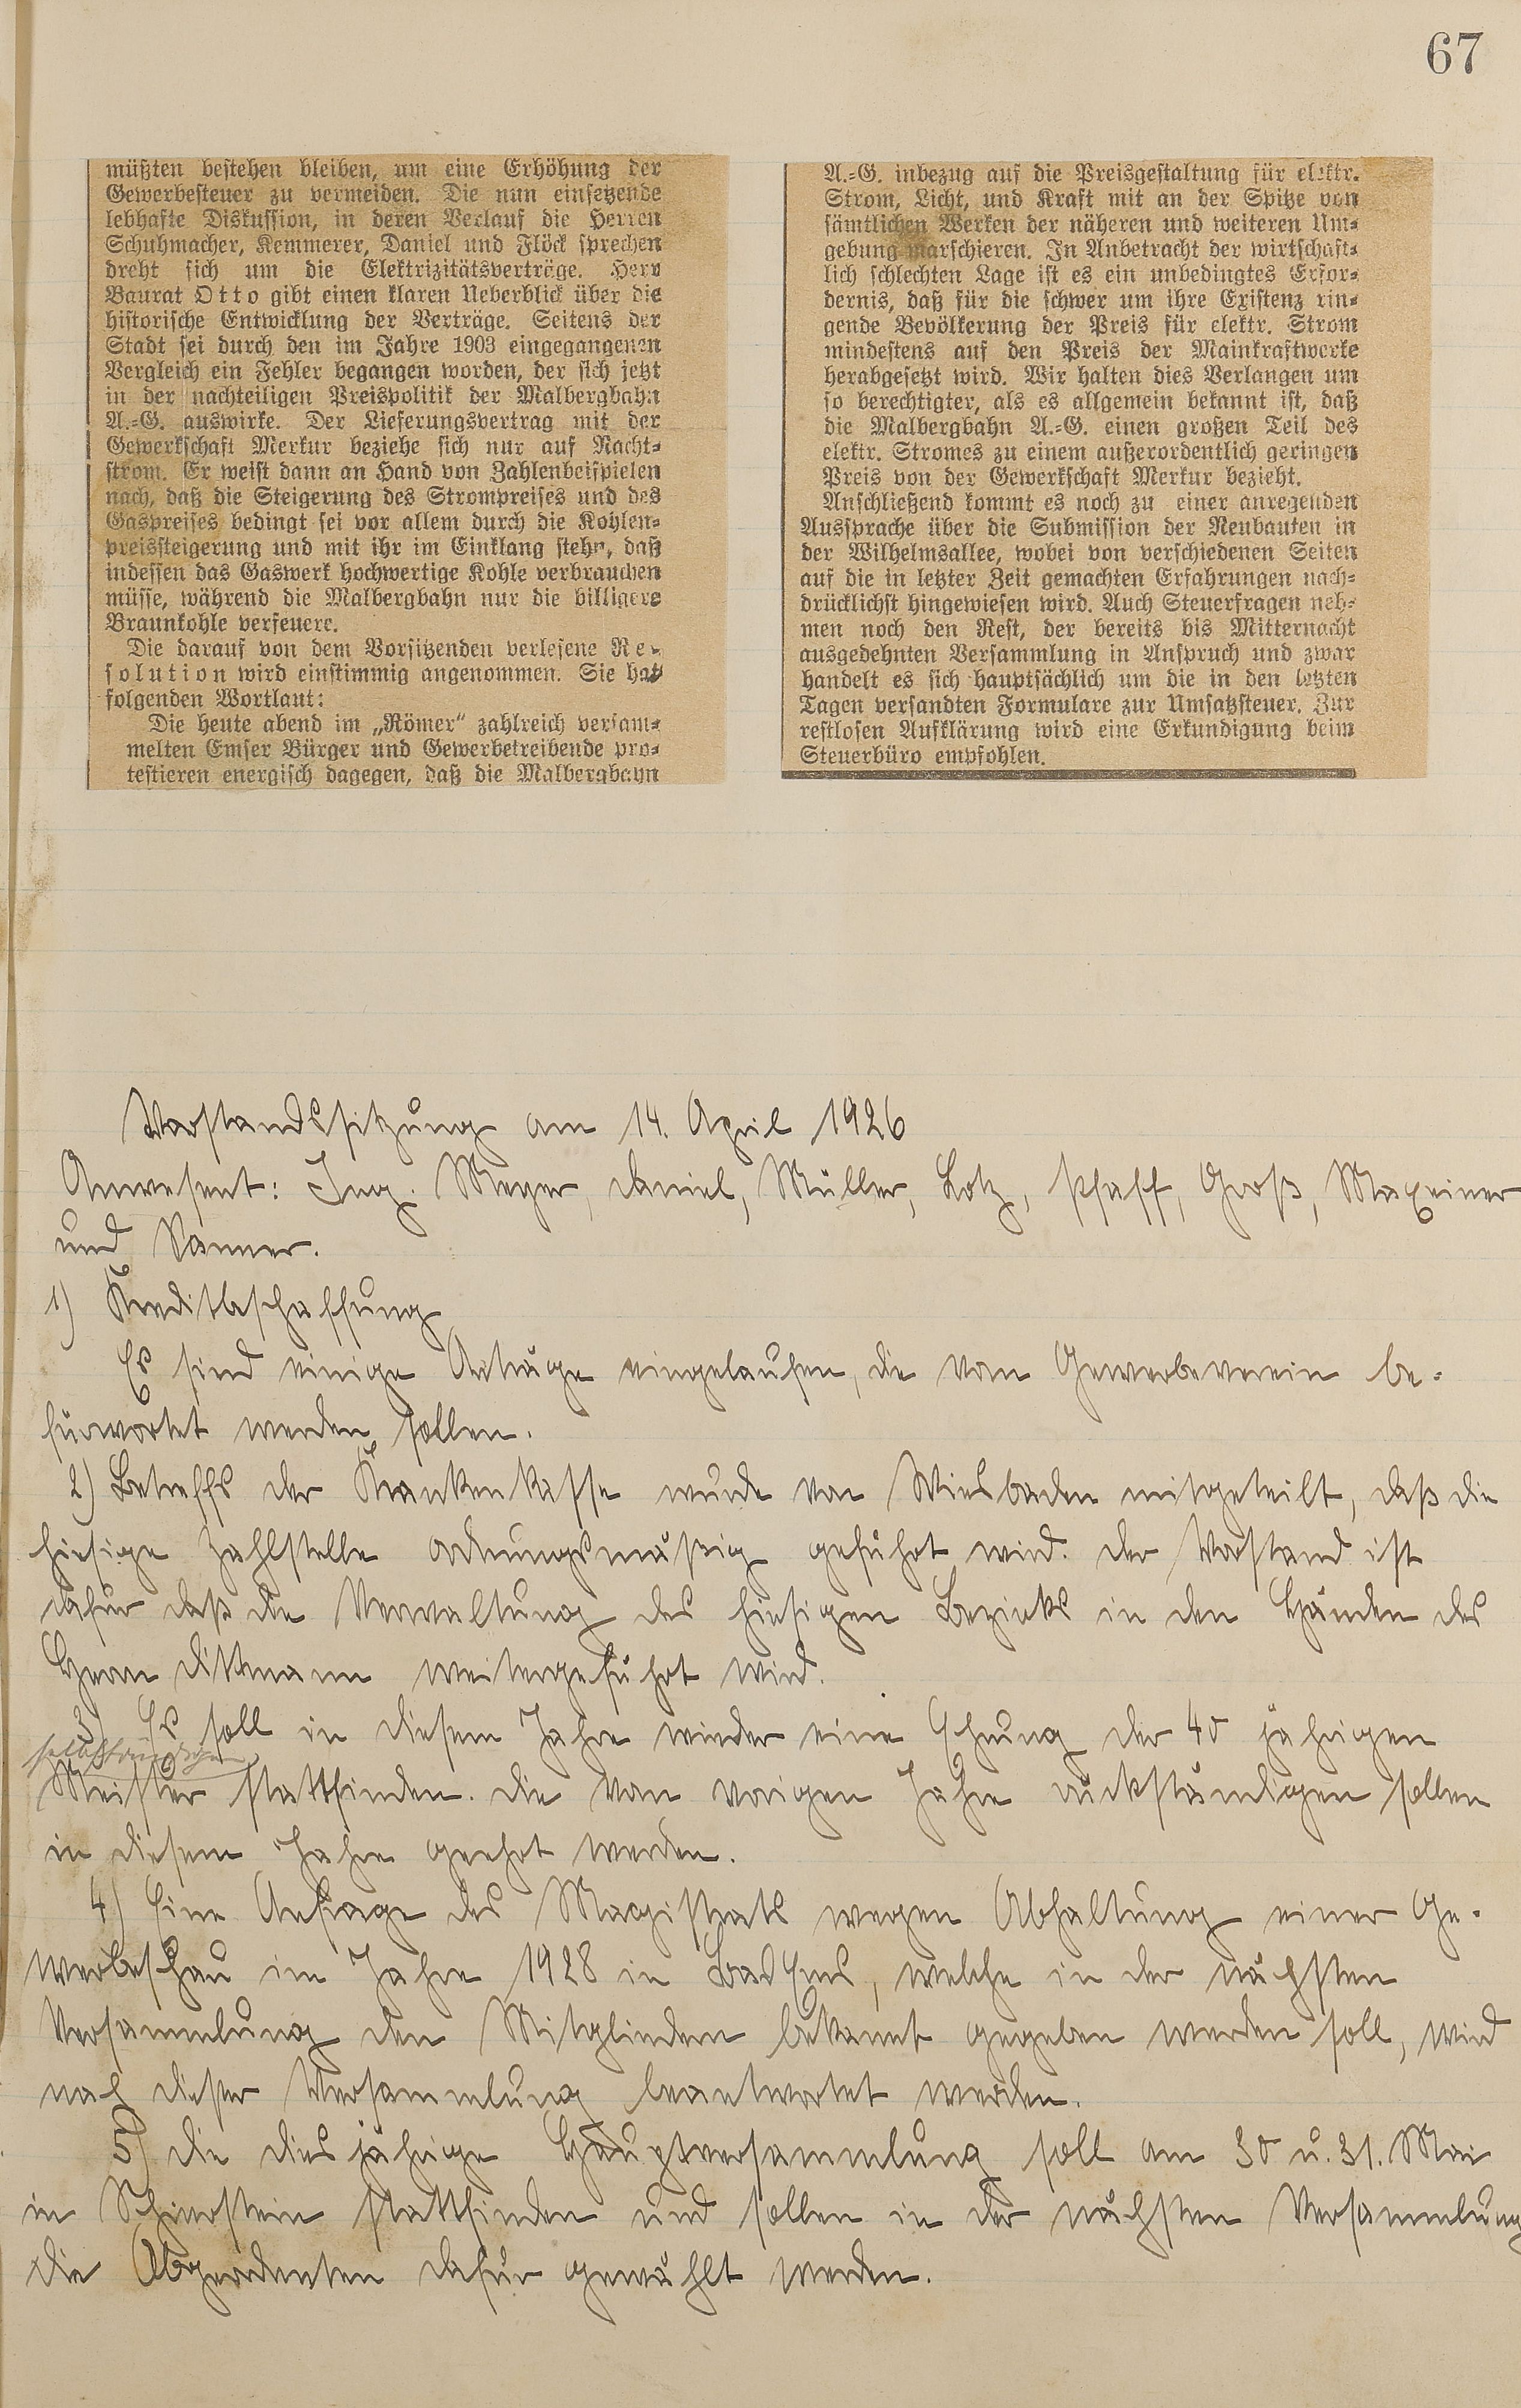 67
müßten bestehen bleiben, um eine Erhöhung der
Gewerbesteuer zu vermeiden. Die nun einsetzende
lebhafte Diskussion, in deren Verlauf die Herren
Schuhmacher, Kemmerer, Daniel und Flöck sprechen
dreht sich um die Elektrizitätsverträge. Herr
Baurat Otto gibt einen klaren Ueberblick über die
historische Entwicklung der Verträge. Seitens der
Stadt sei durch den im Jahre 1903 eingegangenen
Vergleich ein Fehler begangen worden, der sich jetzt
in der nachteiligen Preispolitik der Malbergbahn
A.=G. auswirke. Der Lieferungsvertrag mit der
Gewerkschaft Merkur beziehe sich nur auf Nacht=
strom. Er weist dann an Hand von Zahlenbeispielen
nach, daß die Steigerung des Strompreises und des
Gaspreises bedingt sei vor allem durch die Kohlen=
preissteigerung und mit ihr im Einklang stehe, daß
indessen das Gaswerk hochwertige Kohle verbrauchen
müsse, während die Malbergbahn nur die billigere
Braunkohle verfeuere.
Die darauf von dem Vorsitzenden verlesene Re=
solution wird einstimmig angenommen. Sie hat
folgenden Wortlaut:
Die heute abend im „Römer“ zahlreich versam=
melten Emser Bürger und Gewerbetreibende pro=
testieren energisch dagegen, daß die Malbergbahn
A.=G. inbezug auf die Preisgestaltung für elektr.
Strom, Licht, und Kraft mit an der Spitze von
sämtlichen Werken der näheren und weiteren Um=
gebung marschieren. In Anbetracht der wirtschaft=
lich schlechten Lage ist es ein unbedingtes Erfor=
dernis, daß für die schwer um ihre Existenz rin=
gende Bevölkerung der Preis für elektr. Strom
mindestens auf den Preis der Mainkraftwerke
herabgesetzt wird. Wir halten dies Verlangen um
so berechtigter, als es allgemein bekannt ist, daß
die Malbergbahn A.=G. einen großen Teil des
elektr. Stromes zu einem außerordentlich geringen
Preis von der Gewerkschaft Merkur bezieht.
Anschließend kommt es noch zu einer anregenden
Aussprache über die Submission der Neubauten in
der Wilhelmsallee, wobei von verschiedenen Seiten
auf die in letzter Zeit gemachten Erfahrungen nach=
drücklichst hingewiesen wird. Auch Steuerfragen neh=
men noch den Rest, der bereits bis Mitternacht
ausgedehnten Versammlung in Anspruch und zwar
handelt es sich hauptsächlich um die in den letzten
Tagen versandten Formulare zur Umsatzsteuer. Zur
restlosen Aufklärung wird eine Erkundigung beim
Steuerbüro empfohlen.
Vorstandssitzung am 14. April 1926
Anwesent: Ing. Meyer, Daniel, Müller, Lotz, Pfaff, Groß, Maxeiner
und Sanner.
1) Kreditbschaffung
Es sind einige Anträge eingelaufen, die vom Gewerbeverein be=
fürwortet werden sollen.
2) Betreffs der Krankenkasse wurde von Wiesbaden mitgeteilt, daß die
hiesige Zahlstelle ordnungsmäßig geführt wird. Der Vorstand ist
dafür daß die Verwaltung des hiesigen Bezirks in den Händen des
Herrn Dittmann weitergeführt wird.
3) Es soll in diesem Jahre wieder eine Ehrung der 40 jährigen
selbständigen
Meister stattfinden. Die vom vorigen Jahre rückständigen sollen
in diesem Jahre geehrt werden.
4) Eine Anfrage des Magistrats wegen Abhaltung einer Ge=
werbeschau im Jahre 1928 in Bad Ems, welche in der nächsten
Versammlung den Mitgliedern bekannt gegeben werden soll, wird
nach dieser Versammlung beantwortet werden.
5) Die diesjährige Hauptversammlung soll am 30 u. 31. Mai
in Schierstein stattfinden und sollen in der nächsten Versammlung
die Abgeordneten dafür gewählt werden.